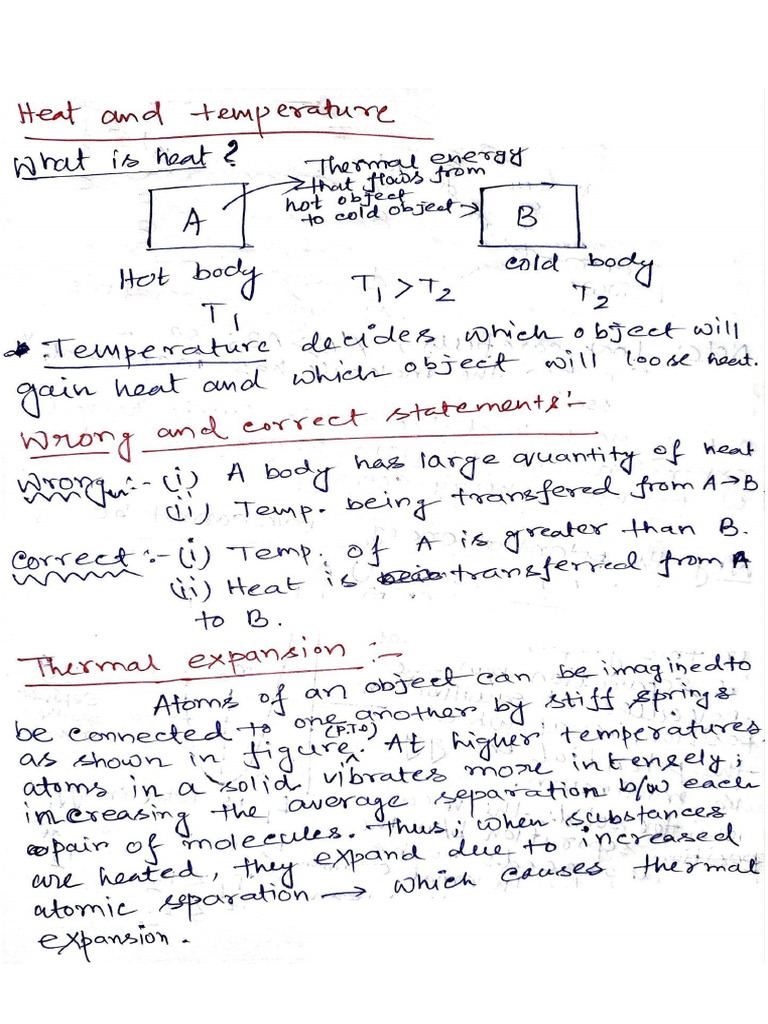 Heat and temperature
What is heat?
Thermal energy
that flows from
hot object
to cold object
A
B
Hot body
T1 > T2
cold body
T1
T2
Temperature decides which object will
gain heat and which object will loose heat.
Wrong and correct statements:-
Wrong:- (i) A body has large quantity of heat
(ii) Temp. being transfered from A→B.
Correct:- (i) Temp. of A is greater than B.
(ii) Heat is transferred from A
to B.
Thermal expansion :-
Atoms of an object can be imagined to
be connected to one another by stiff springs
(P.T.O)
as shown in figure. At higher temperatures,
atoms in a solid vibrates more intensely;
increasing the average separation b/w each
pair of molecules. Thus; when substances
are heated, they expand due to increased
atomic separation → which causes thermal
expansion.